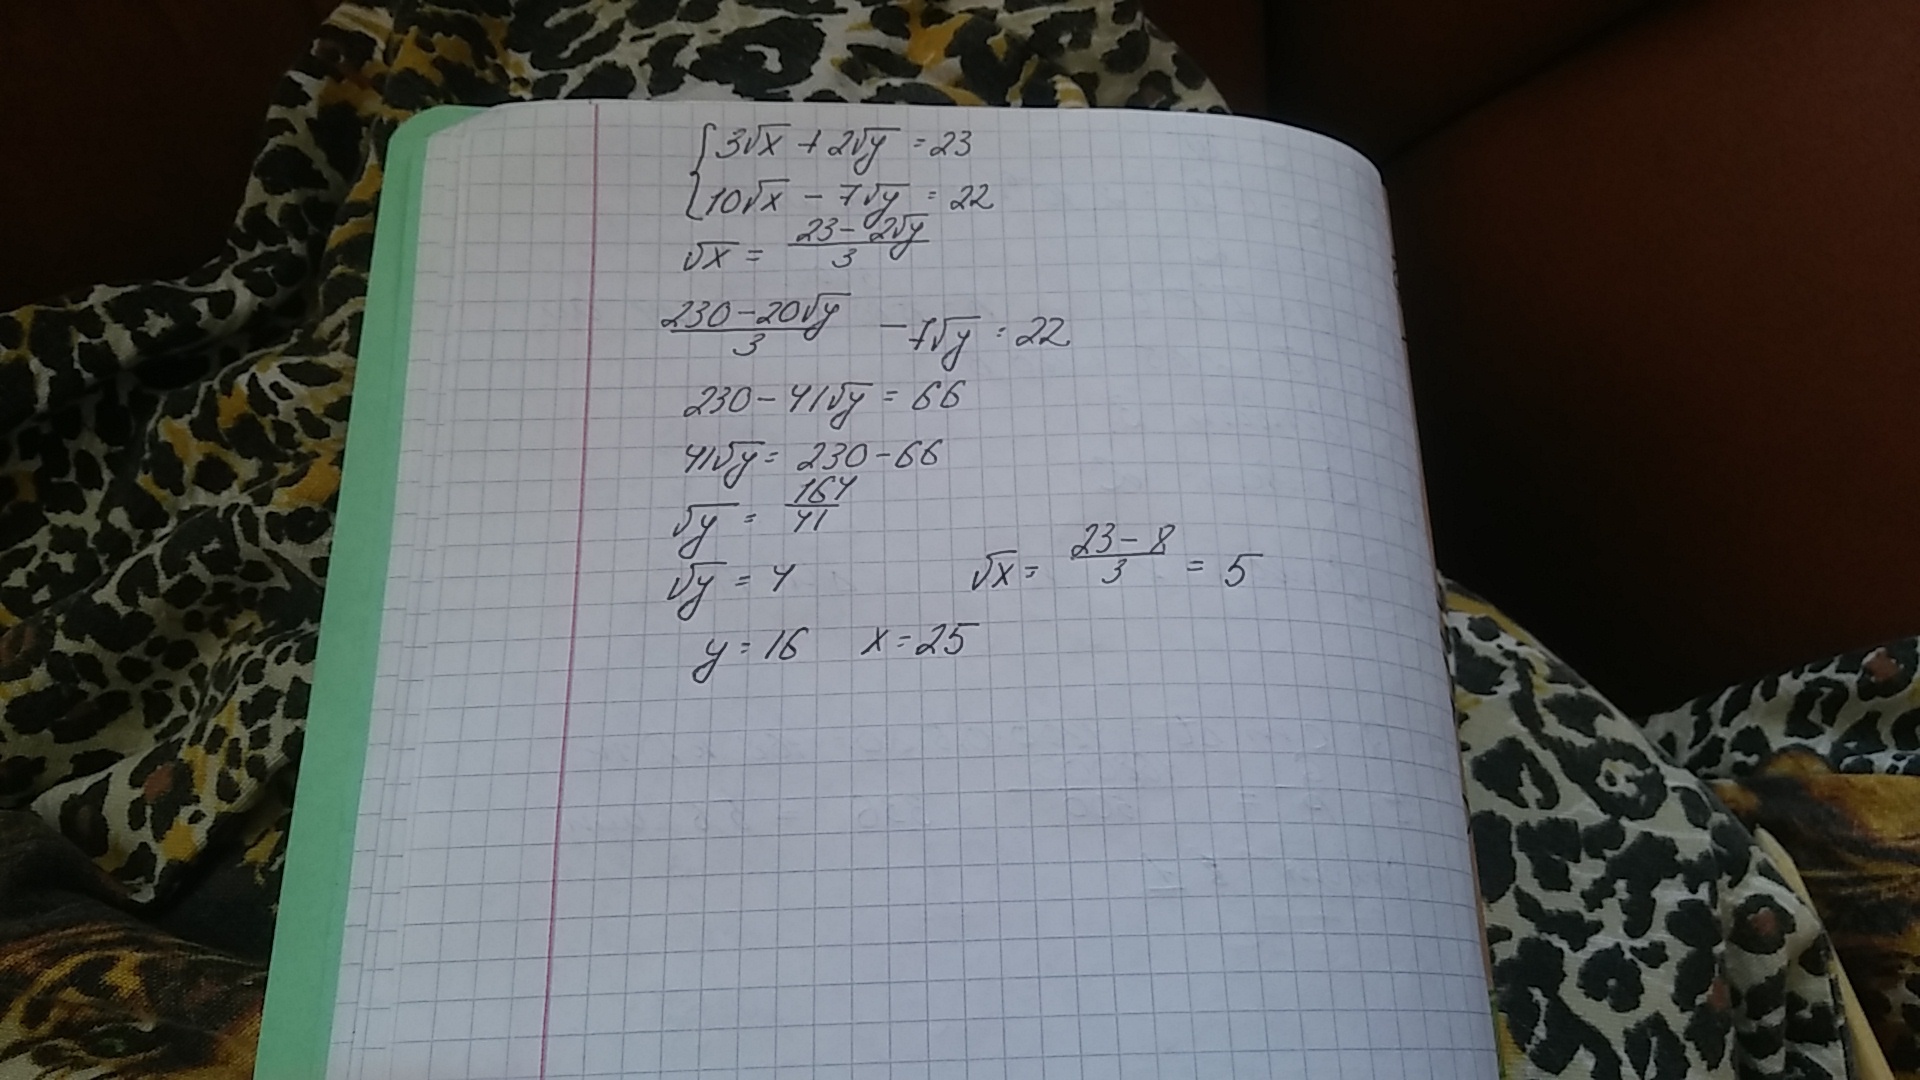 { 3√x + 2√y = 23
10√x - 7√y = 22
√x = (23 - 2√y)/3
(230 - 20√y)/3 - 7√y = 22
230 - 41√y = 66
41√y = 230 - 66
√y = 164/41
√y = 4 √x = (23 - 8)/3 = 5
y = 16 x = 25